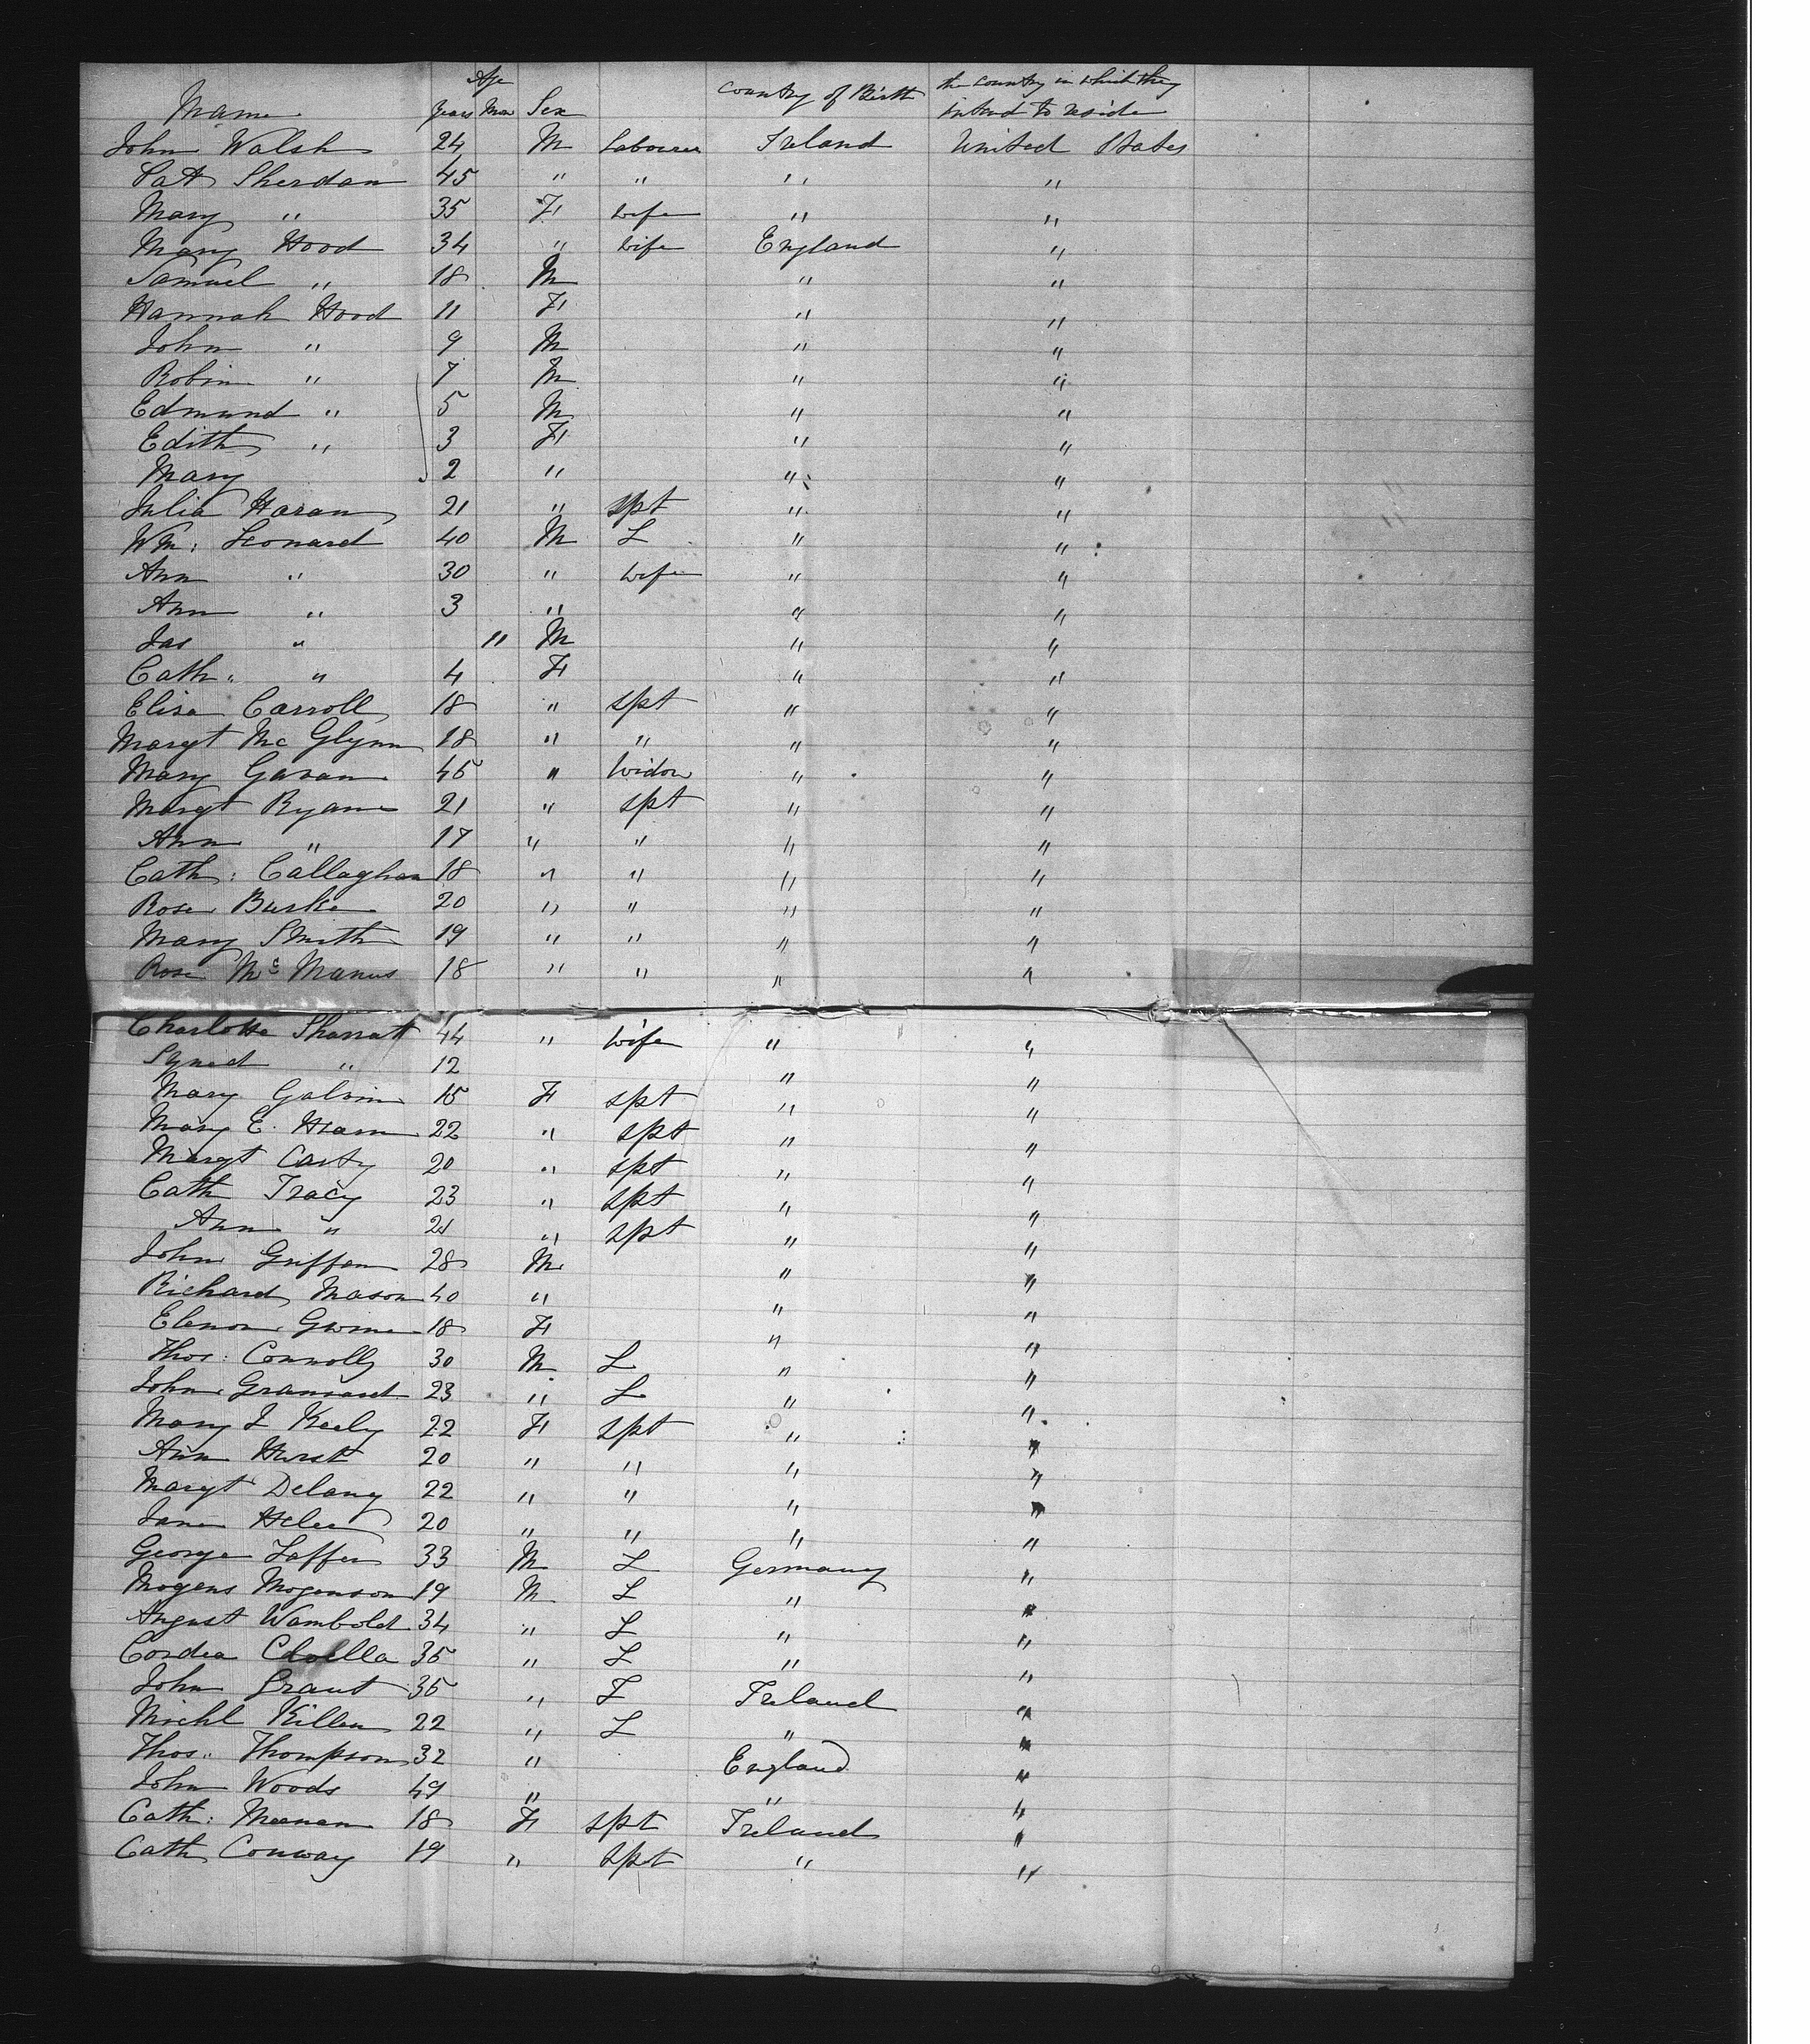 Name Age Years Mon Sex Country of Birth the country in which they intend to reside
John Walsh 24 M Labourer Ireland United States
Pat Sherdan 45 " " " "
Mary " 35 F wife " "
Mary Hood 34 " wife England "
Samuel " 18 M " "
Hannah Hood 11 F " "
John " 9 M " "
Robin " 7 M " "
Edmund " 5 M " "
Edith " 3 F " "
Mary 2 " " "
Julia Haran 21 " spt " "
Wm: Leonard 40 M L " "
Ann " 30 " wife " "
Ann " 3 " " "
Jas " 11 M " "
Cath: " 4 F " "
Eliza Carroll 18 " spt " "
Margt Mc Glynn 18 " " " "
Mary Gavan 45 " widow " "
Margt Ryan 21 " spt " "
Ann " 17 " " " "
Cath: Callaghan 18 " " " "
Rose Burke 20 " " " "
Mary Smith 19 " " " "
Rose Mc Manus 18 " " " "
Charlotte Sharratt 44 " wife " "
" 12 " "
Mary Galvin 15 F spt " "
Mary E. 22 " spt " "
Margt Carty 20 " spt " "
Cath Tracy 23 " spt " "
Ann " 21 " spt " "
John Griffen 28 M " "
Richard Mason 40 " " "
Elenor 18 F " "
Thos: Connolly 30 M L " "
John 23 " L " "
Mary J Keely 22 F spt " "
Ann Hurst 20 " " " "
Margt Delany 22 " " " "
Jane 20 " " " "
George Laffer 33 M L Germany "
Mogens Mogenson 19 M L " "
August Wambold 34 " L " "
Cordea 35 " L " "
John Grant 35 " L Ireland "
Michl Killen 22 " L " "
Thos: Thompson 32 " England "
John Woods 49 " " "
Cath: Meenan 18 F spt Ireland "
Cath Conway 19 " spt " "